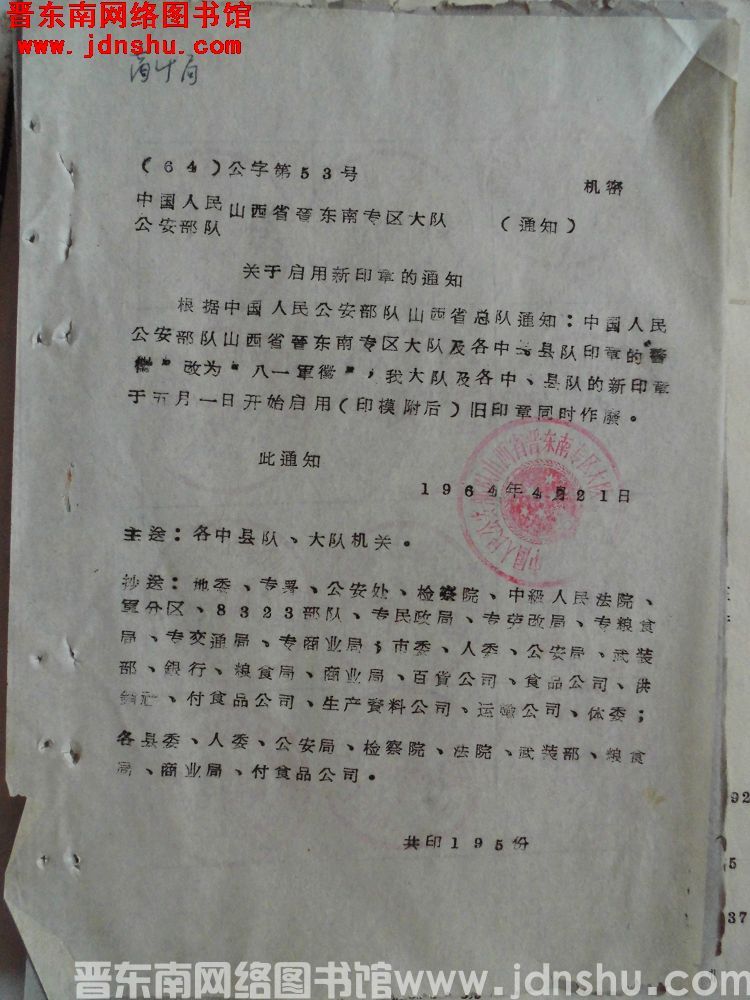 晋东南网络图书馆
www.jdnshu.com
(64)公字第53号
机密
中国人民
公安部队
山西省晋东南专区大队
(通知)
关于启用新印章的通知
根据中国人民公安部队山西省总队通知:中国人民
公安部队山西省晋东南专区大队及各中、县队印章的“警
徽”改为“八一軍徽”,我大队及各中、县队的新印章
于五月一日开始启用(印模附后)旧印章同时作廢。
此通知
1964年4月21日
主送:各中县队、大队机关。
抄送:地委、专署、公安处、检察院、中級人民法院、
軍分区、8323部队、专民政局、专劳改局、专粮食
局、专交通局、专商业局;市委、人委、公安局、武装
部、銀行、粮食局、商业局、百貨公司、食品公司、供
銷社、付食品公司、生产資料公司、运輸公司、体委;
各县委、人委、公安局、检察院、法院、武装部、粮食
局、商业局、付食品公司。
共印195份
92
5
37
晋东南网络图书馆www.jdnshu.com